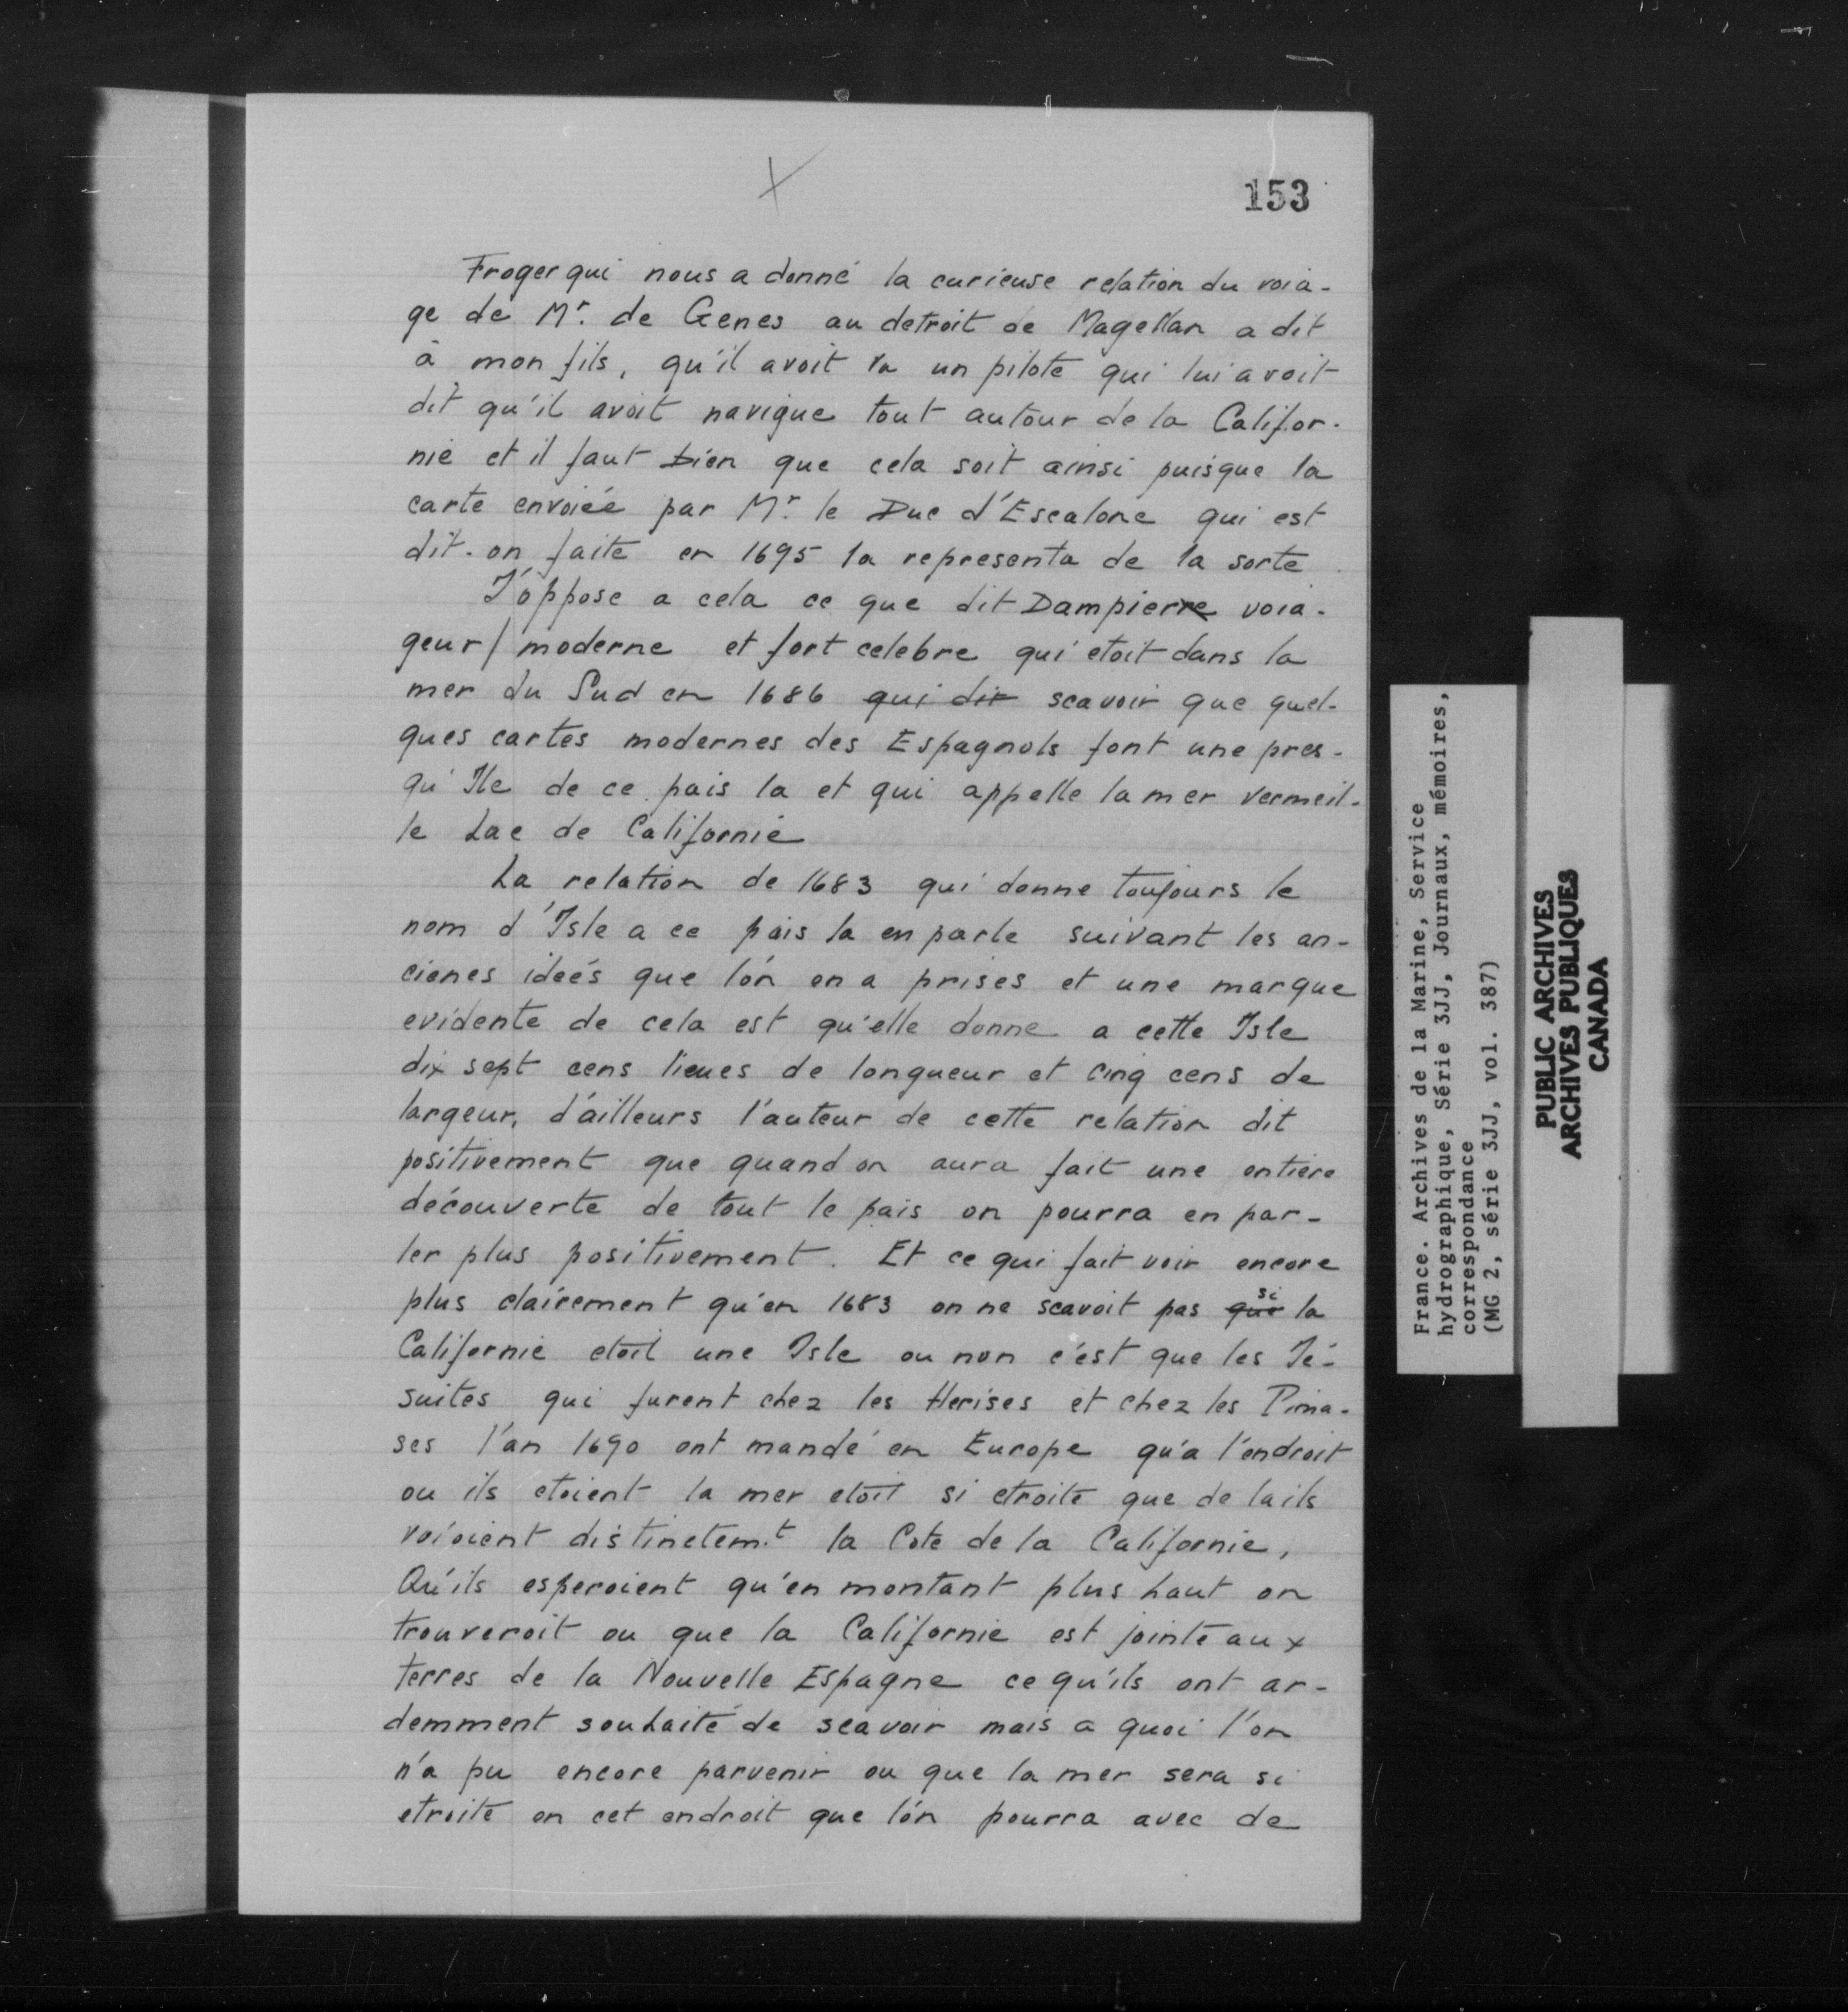 153
Froger qui nous a donné la curieuse relation du voia-
ge de Mr. de Genes au detroit de Magellan a dit
à mon fils, qu'il avoit vu un pilote qui lui avoit
dit qu'il avoit navigue tout autour de la Califor-
nie et il faut bien que cela soit ainsi puisque la
carte envoiée par Mr. le Duc d'Escalone qui est
dit-on faite en 1695 la representa de la sorte
J'oppose a cela ce que dit Dampierre voia-
geur/ moderne et fort celebre qui etoit dans la
mer du Sud en 1686 qui dit scavoir que quel-
ques cartes modernes des Espagnols font une pres-
qu'Ile de ce pais la et qui appelle la mer vermeil-
le Lac de Californie
La relation de 1683 qui donne toujours le
nom d'Isle a ce pais la en parle suivant les an-
cienes ideés que l'on en a prises et une marque
evidente de cela est qu'elle donne a cette Isle
dix sept cens lieues de longueur et cinq cens de
largeur, d'ailleurs l'auteur de cette relation dit
positivement que quand on aura fait une entiere
découverte de tout le pais on pourra en par-
ler plus positivement. Et ce qui fait voir encore
plus clairement qu'en 1683 on ne scavoit pas que si la
Californie etoit une Isle ou non c'est que les Jé-
suites qui furent chez les Herises et chez les Pima-
ses l'an 1690 ont mandé en Europe qu'a l'endroit
ou ils etoient la mer etoit si etroite que de la ils
voioient distinctem.t la Cote de la Californie,
Qu'ils esperoient qu'en montant plus haut on
trouveroit ou que la Californie est jointe aux
terres de la Nouvelle Espagne ce qu'ils ont ar-
demment souhaité de scavoir mais a quoi l'on
n'a pu encore parvenir ou que la mer sera si
etroite en cet endroit que l'on pourra avec de
France. Archives de la Marine, Service
hydrographique, Série 3JJ, Journaux, mémoires,
correspondance
(MG 2, série 3JJ, vol. 387)
PUBLIC ARCHIVES
ARCHIVES PUBLIQUES
CANADA